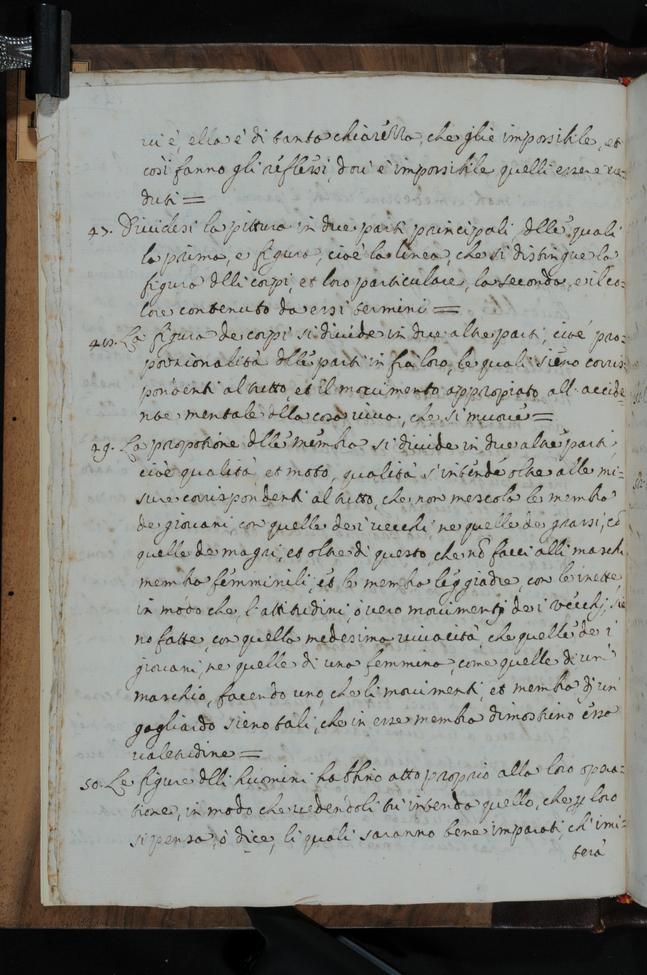 vi è, ella è di tanta chiarezza, che gl'è impossibile, et
così fanno gli reflessi, dov'è impossibile quelli essere ve=
duti =
47. Dividesi la pittura in due parti principali dlle quali
la prima, e figura, cioè la linea, che si distingue la
figura dlli corpi, et loro particulare, la seconda, e il co=
lore contenuto da essi termini =
48. La figura de corpi si divide in due altre parti, cioè pro=
porzionalità dlle parti in frà loro, le quali sieno corris=
pondenti al tutto, et il movimento appropiato all'accide=
nte mentale dlla cosa viva, che si muove =
49. La propotione dlle membra si divide in due altre parti,
cioè qualità, et moto, qualità s'intende oltre alle mi=
sure corrispondenti al tutto, che non mescola le membra
de giovani con quelle de i vecchi, ne quelle de grassi, cō
quelle de magri, et oltre di questo, che nō facci alli maschi
membra femminili, et le membra leggiadre, con le inette
in modo che l'attitudini, ò vero movimenti de i vecchj, sie
no fatte, con quella medesima vivacità, che quelle de i
giovani, ne quelle di una femmina, come quelle di un'
maschio, facendo uno, che li movimenti, et membra di un'
gagliardo sieno tali, che in esse membra dimostrino essa
valetudine =
50. Le figure dlli huomini habbino atto proprio alla loro opera=
tione, in modo che vedendoli tu intenda quello, che loro
si pensa, ò dice, li quali saranno bene imparati ch'imi=
terà